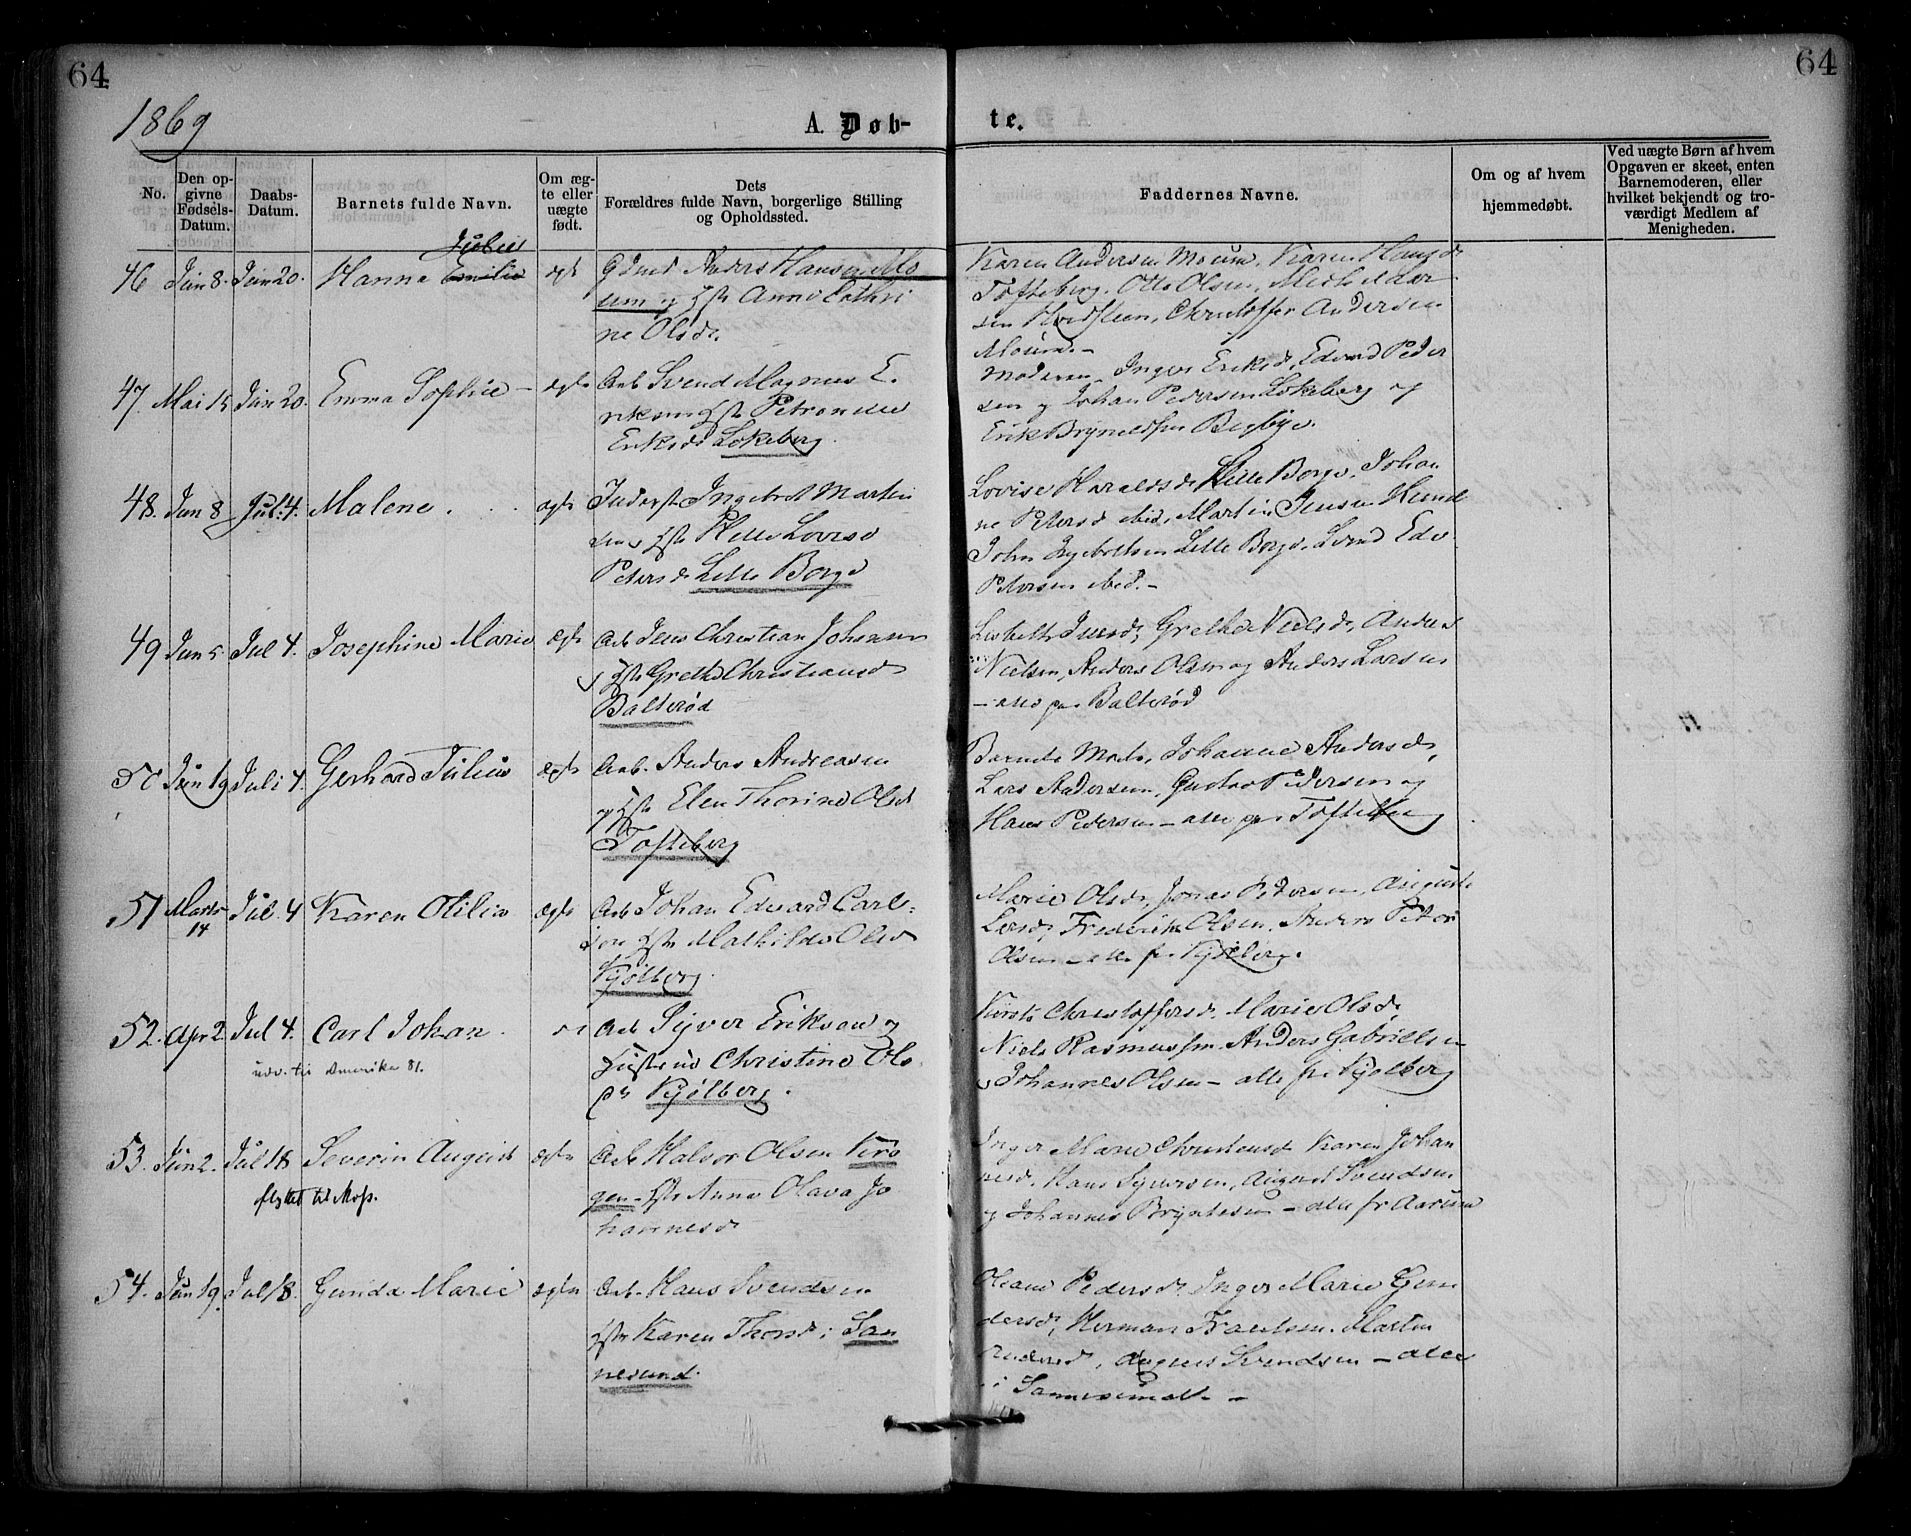 64
64
1869
A. Døb-
te.
No.
Den op-
givne
Fødsels-
Datum.
Daabs-
Datum.
Barnets fulde Navn.
Om æg-
te eller
uægte
født.
Dets
Forældres fulde Navn, borgerlige Stilling
og Opholdssted.
Faddernes Navne.
Om og af hvem
hjemmedøbt.
Ved uægte Børn af hvem
Opgaven er skeet, enten
Barnemoderen, eller
hvilket bekjendt og tro-
værdigt Medlem af
Menigheden.
Julie
46 Jun 8. Jun 20. Hanna Emilie ægte Gdmd Anders Hansen Mo
um og Hst Anne Cathri
ne Olsdr.
Karen Andersen Moum, Karen Hansdr
Tofteberg, Otto Olsen,
Christoffer Andersen
Moum.-
47. Mai 15 Jun 20. Emma Sophie - ægte Arb Svend Magnus E.
riksen Hst Petronelle
Eriksdr Lokeberg.
Moderen, Inger Eriksdr, Edvard Peder
sen og Johan Pedersen Lokeberg og
Erik Brynildsen Begbye.
48. Jun 8 Jul 4. Malene. ægte Inderst Ingebret Martin
sen Hst Helle Lovise
Petersdr Lille Borge
Lovise Haraldsdr Lille Borge, Johan
ne Petersdr ibid, Martin Jensen Hund
John Ingebretsen Lille Borge, Svend Edv
Petersen ibid.-
49 Jun 5. Jul 4. Josephine Marie ægte Arb Jens Christian Johansen
og Hst Grethe Christiansdr
Balterød
Lisbeth Jensdr, Grethe Nielsdr, Anders
Nielsen, Anders Olsen og Anders Larsen
- alle paa Balterød
50 Jun 19 Juli 4. Gerhard Julius ægte Arb. Anders Andreasen
og Hst Elen Thorine Olsdr
Tofteberg
Barnets Moder, Johanne Andersdr,
Lars Andersen, Gustav Pedersen og
Hans Pedersen - alle paa Tofteberg
51 Marts
14 Jul. 4 Karen Otilie ægte Arb Johan Edvard Carls-
sen Hst Mathilde Olsdr
Kjølberg.
Marie Olsdr, Jonas Pedersen, Auguste
Larsdr, Frederik Olsen, Anders Peter
Olsen - alle fra Kjølberg.
52. Apr 2. Jul 4. Carl Johan. Arb Syver Eriksen og
Hustru Christine Ols
dr Kjølberg.
udv. til Amerika 81.
Kirsti Christoffersdr, Marie Olsdr,
Niels Rasmussen, Anders Gabrielsen
og Johannes Olsen - alle fra Kjølberg
53. Jun 2. Jul 18 Severin August ægte Arb Halvor Olsen
gen - Hst Anne Olava Jo
hannesdr
flyttet til Moss.
Inger Marie Christensdr Karen Johan
nesdr. Hans Syversen, August Svendsen
og Johannes Bryntesen - alle fr Aarum
54. Jun 19. Jul 18. Gunda Marie ægte Arb. Hans Svendsen
Hst Karen Thorsdr i San
nesund.
Pedersdr, Inger Marie Gun
dersdr, Herman Frantsen, Martin
Svendsen - alle
i Sannesund -